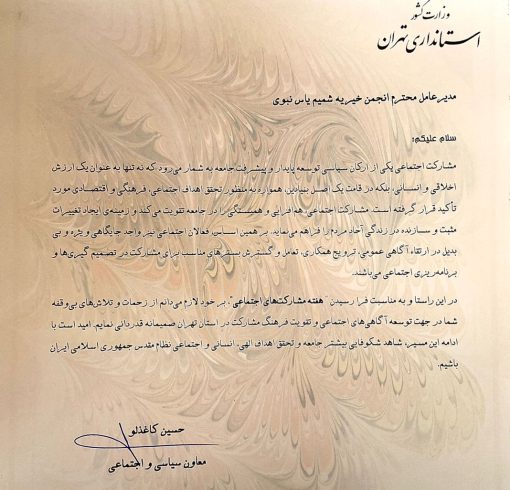 وزارت کشور
استانداری تهران
مدیر عامل محترم انجمن خیریه شمیم یاس نبوی
سلام علیکم؛
مشارکت اجتماعی یکی از ارکان سیاسی توسعه پایدار و پیشرفت جامعه به شمار می‌رود که نه تنها به عنوان یک ارزش
اخلاقی و انسانی، بلکه در قامت یک اصل بنیادین، همواره به منظور تحقق اهداف اجتماعی، فرهنگی و اقتصادی مورد
تأکید قرار گرفته است. مشارکت اجتماعی، هم‌افزایی و همبستگی را در جامعه تقویت می‌کند و زمینه‌ی ایجاد تغییرات
مثبت و سازنده در زندگی آحاد مردم را فراهم می‌نماید. بر همین اساس، فعالان اجتماعی نیز واجد جایگاهی ویژه و بی
بدیل در ارتقاء آگاهی عمومی، ترویج همکاری، تعامل و گسترش بسترهای مناسب برای مشارکت در تصمیم گیری‌ها و
برنامه‌ریزی اجتماعی می‌باشند.
در این راستا و به مناسبت فرا رسیدن "هفته مشارکت‌های اجتماعی"، بر خود لازم می‌دانم از زحمات و تلاش‌های بی‌وقفه
شما در جهت توسعه آگاهی‌های اجتماعی و تقویت فرهنگ مشارکت در استان تهران صمیمانه قدردانی نمایم. امید است با
ادامه این مسیر، شاهد شکوفایی بیشتر جامعه و تحقق اهداف الهی، انسانی و اجتماعی نظام مقدس جمهوری اسلامی ایران
باشیم.
حسین کاغذلو
معاون سیاسی و اجتماعی